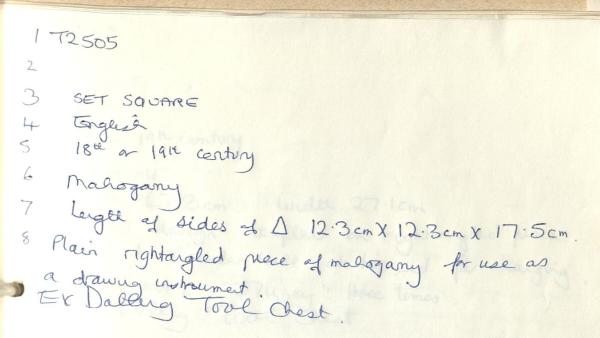 1 T2505
2
3 SET SQUARE
4 English
5 18th or 19th century
6 Mahogany
7 Length of sides of Δ 12.3cm X 12.3cm X 17.5cm.
8 Plain rightangled piece of mahogany for use as
a drawing instrument.
Ex Dalling Tool Chest.